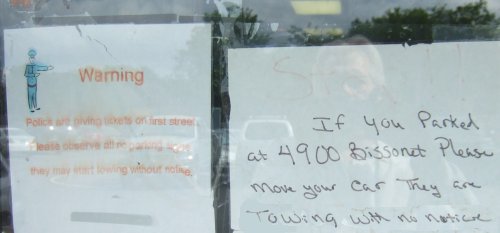 Warning
Police are giving tickets on first street
Please observe all no parking signs
they may start towing without notise.
If you Parked
at 4900 Bissonet Please
move your car They are
Towing with no noticre